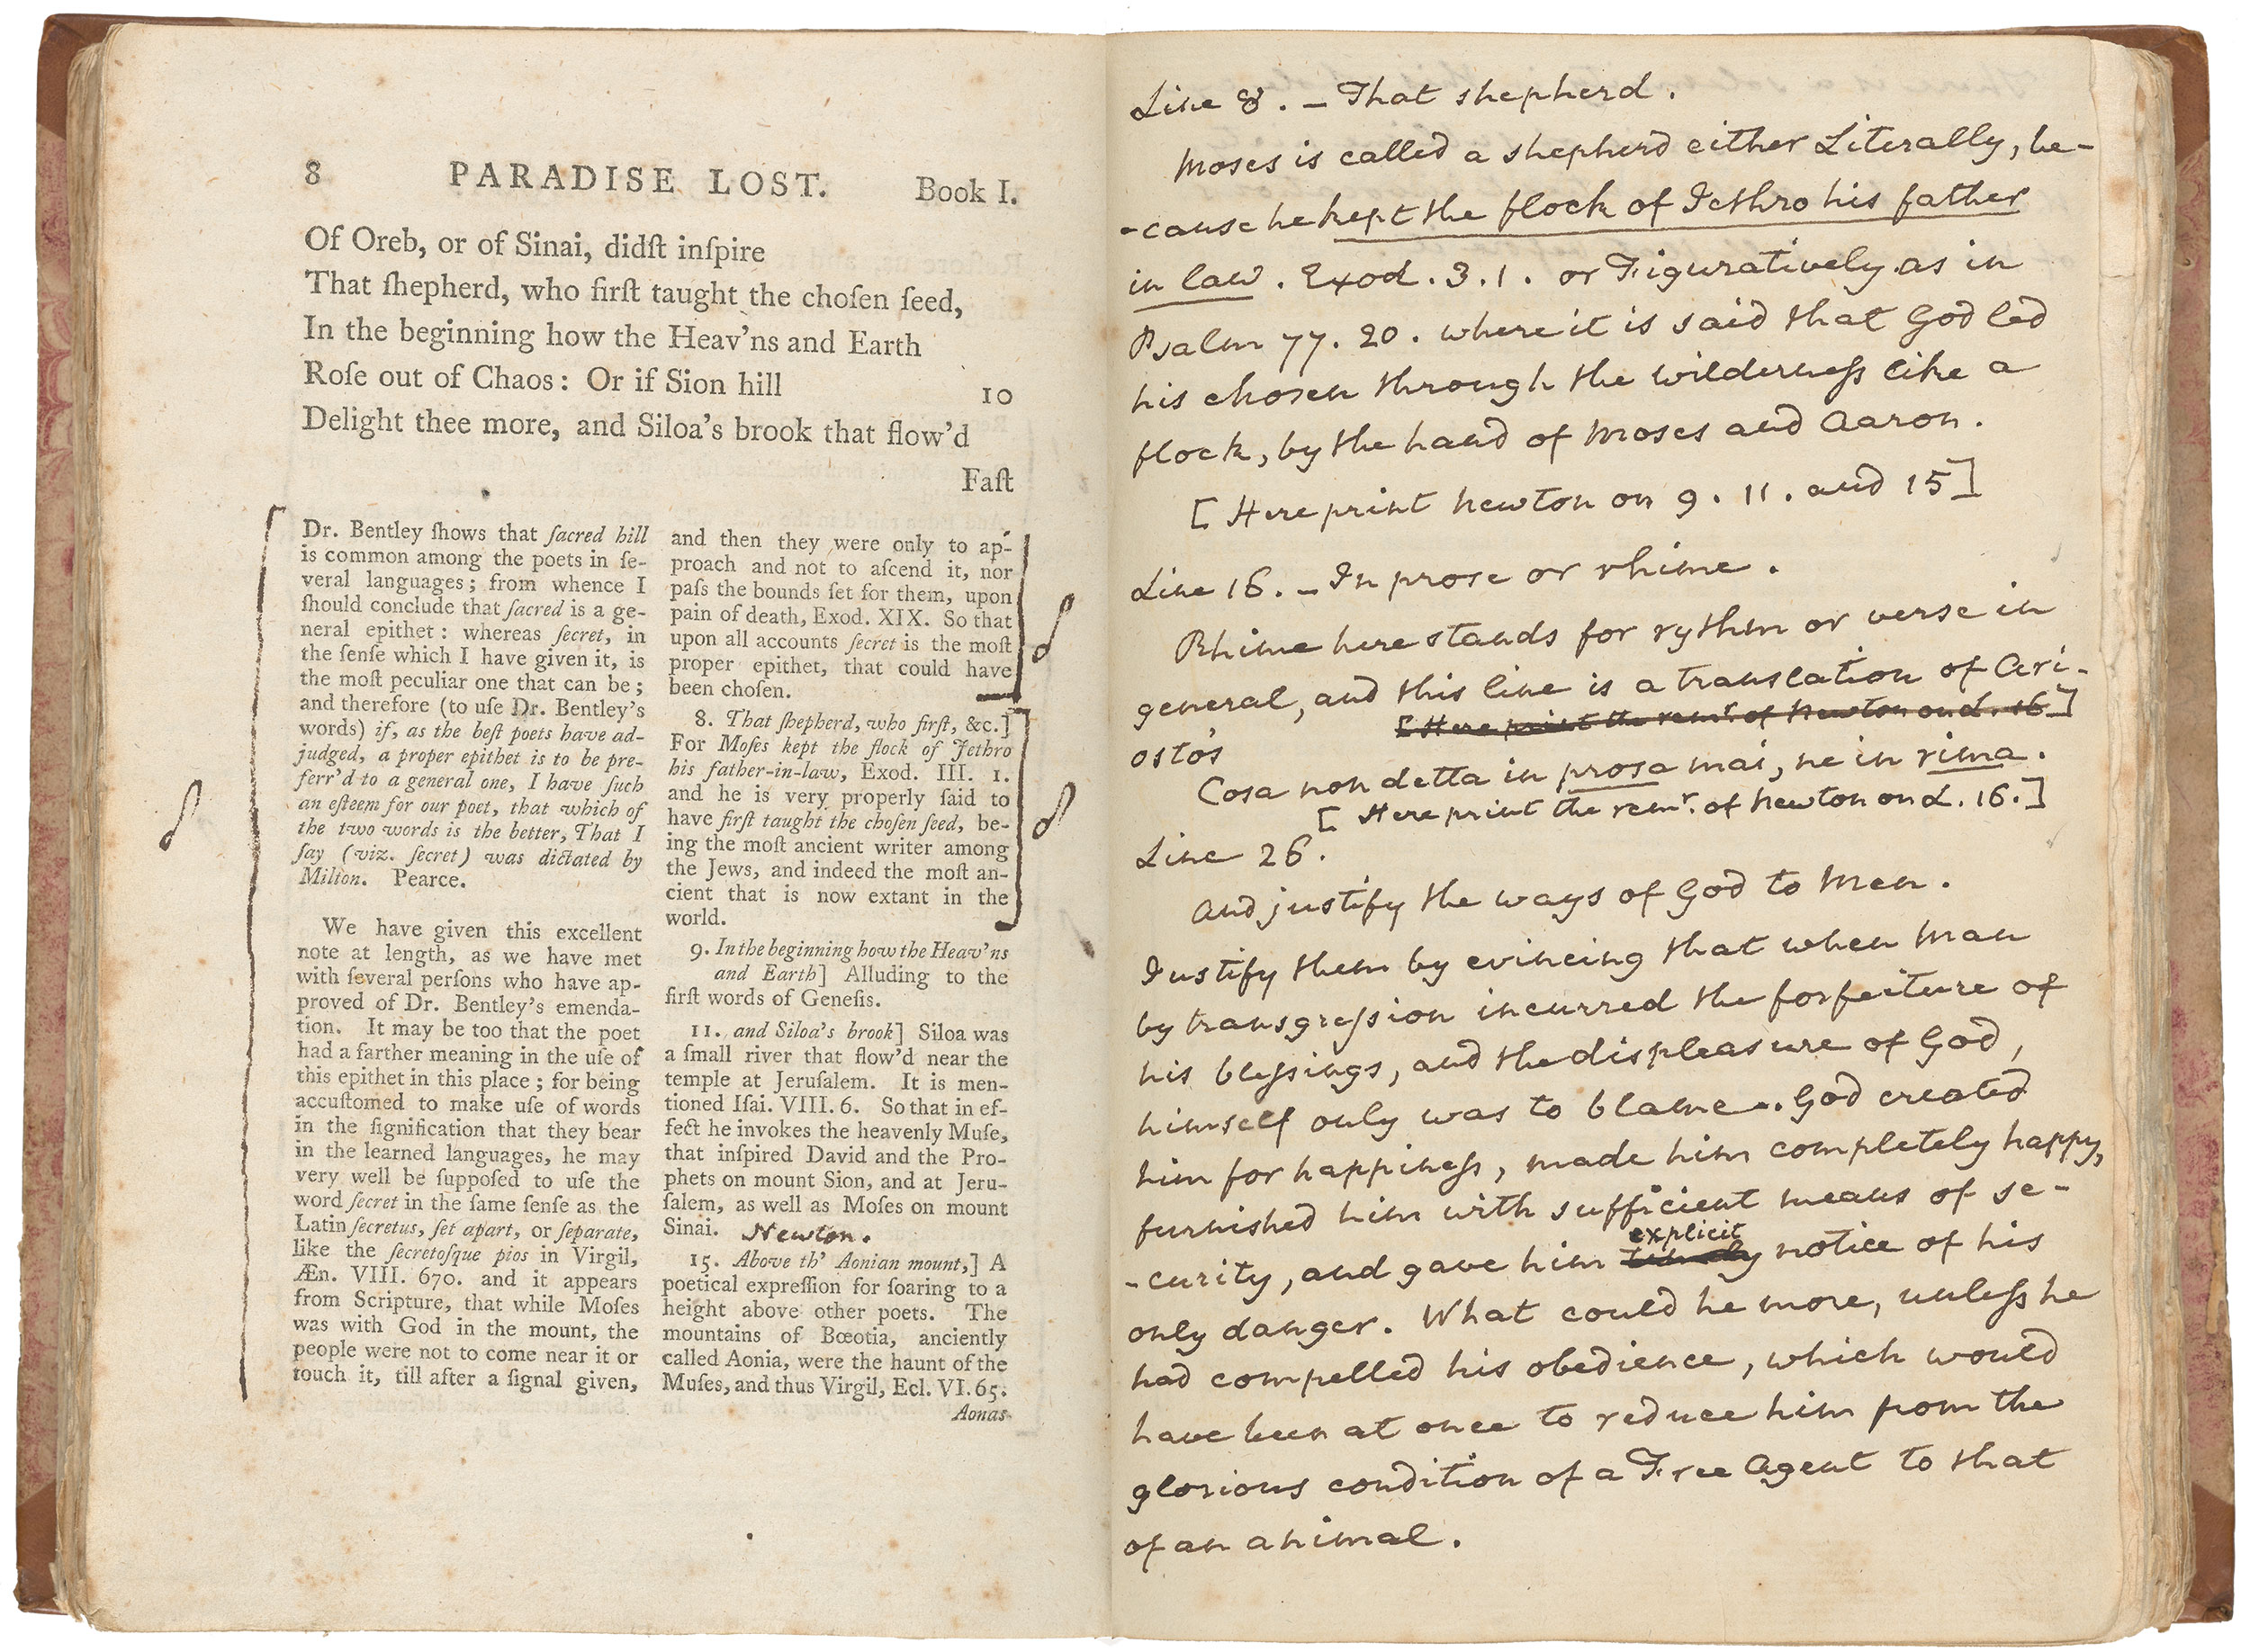 8 PARADISE LOST. Book I.
Of Oreb, or of Sinai, didſt inſpire
That ſhepherd, who firſt taught the choſen ſeed,
In the beginning how the Heav'ns and Earth
Roſe out of Chaos: Or if Sion hill 10
Delight thee more, and Siloa's brook that flow'd
Faſt
Dr. Bentley ſhows that ſacred hill
is common among the poets in ſe-
veral languages; from whence I
ſhould conclude that ſacred is a ge-
neral epithet: whereas ſecret, in
the ſenſe which I have given it, is
the moſt peculiar one that can be;
and therefore (to uſe Dr. Bentley's
words) if, as the beſt poets have ad-
judged, a proper epithet is to be pre-
ferr'd to a general one, I have ſuch
an eſteem for our poet, that which of
the two words is the better, That I
ſay (viz. ſecret) was dictated by
Milton. Pearce.
We have given this excellent
note at length, as we have met
with ſeveral perſons who have ap-
proved of Dr. Bentley's emenda-
tion. It may be too that the poet
had a farther meaning in the uſe of
this epithet in this place; for being
accuſtomed to make uſe of words
in the ſignification that they bear
in the learned languages, he may
very well be ſuppoſed to uſe the
word ſecret in the ſame ſenſe as the
Latin ſecretus, ſet apart, or ſeparate,
like the ſecretoſque pios in Virgil,
Æn. VIII. 670. and it appears
from Scripture, that while Moſes
was with God in the mount, the
people were not to come near it or
touch it, till after a ſignal given,
and then they were only to ap-
proach and not to aſcend it, nor
paſs the bounds ſet for them, upon
pain of death, Exod. XIX. So that
upon all accounts ſecret is the moſt
proper epithet, that could have
been choſen.
8. That ſhepherd, who firſt, &c.]
For Moſes kept the flock of Jethro
his father-in-law, Exod. III. 1.
and he is very properly ſaid to
have firſt taught the choſen ſeed, be-
ing the moſt ancient writer among
the Jews, and indeed the moſt an-
cient that is now extant in the
world.
9. In the beginning how the Heav'ns
and Earth] Alluding to the
firſt words of Geneſis.
11. and Siloa's brook] Siloa was
a ſmall river that flow'd near the
temple at Jeruſalem. It is men-
tioned Iſai. VIII. 6. So that in ef-
fect he invokes the heavenly Muſe,
that inſpired David and the Pro-
phets on mount Sion, and at Jeru-
ſalem, as well as Moſes on mount
Sinai. Newton.
15. Above th' Aonian mount,] A
poetical expreſſion for ſoaring to a
height above other poets. The
mountains of Bœotia, anciently
called Aonia, were the haunt of the
Muſes, and thus Virgil, Ecl. VI. 65.
Aonas
Line 8. — That shepherd.
Moses is called a shepherd either Literally, be-
-cause he kept the flock of Jethro his father
in law. Exod. 3. 1. or Figuratively as in
Psalm 77. 20. where it is said that God led
his chosen through the wilderneſs like a
flock, by the hand of Moses and Aaron.
[Here print Newton on 9. 11. and 15]
Line 16. — In prose or rhime.
Rhime here stands for rythm or verse in
general, and this line is a translation of Ari-
[Here print the remr. of Newton on L. 16]
osto's
Cosa non detta in prosa mai, ne in rima.
[Here print the remr. of Newton on L. 16.]
Line 26.
And justify the ways of God to Men.
Justify them by evincing that when Man
by transgreſsion incurred the forfeiture of
his bleſsings, and the displeasure of God,
himself only was to blame. God created
him for happineſs, made him completely happy,
furnished him with sufficient means of se-
explicit
-curity, and gave him notice of his
only danger. What could he more, unleſs he
had compelled his obedience, which would
have been at once to reduce him from the
glorious condition of a Free Agent to that
of an animal.